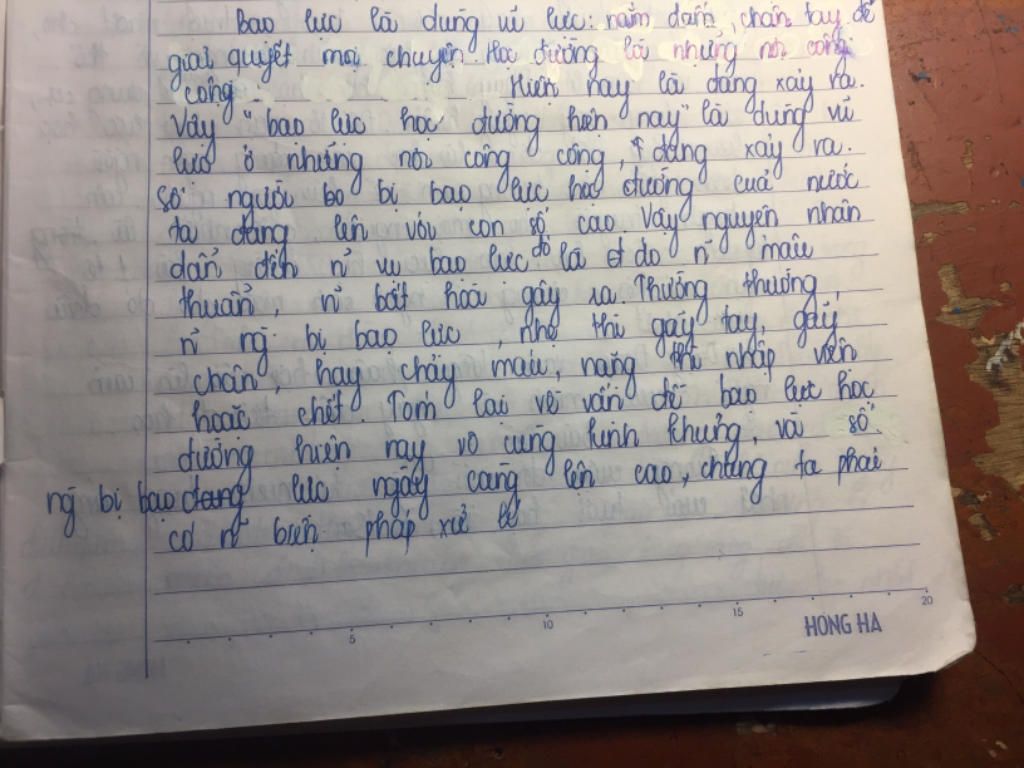 Bao lực là dùng vũ lực: nắm đấm, chân tay để
giải quyết mọi chuyện. Học đường là những nơi công
cộng. Hiện nay là đang xảy ra.
Vậy "bao lực học đường hiện nay" là dùng vũ
lực ở những nơi công cộng, đang xảy ra.
số người bị bao lực học đường của nước
ta đang lên với con số cao. Vậy nguyên nhân
dẫn đến n~ vụ bao lực đó là do n~ mâu
thuẫn, n~ bất hoà gây ra. Thường thường
n~ ng bị bao lực, nhẹ thì gãy tay, gãy
chân, hay chảy máu, nặng thì nhập viện
hoặc chết. Tóm lại về vấn đề bao lực học
đường hiện nay vô cùng kinh khủng, và số
ng bị bạo lực ngày càng lên cao, chúng ta phải
có n~ biện pháp xử lý
5 10 15 20
HONG HA